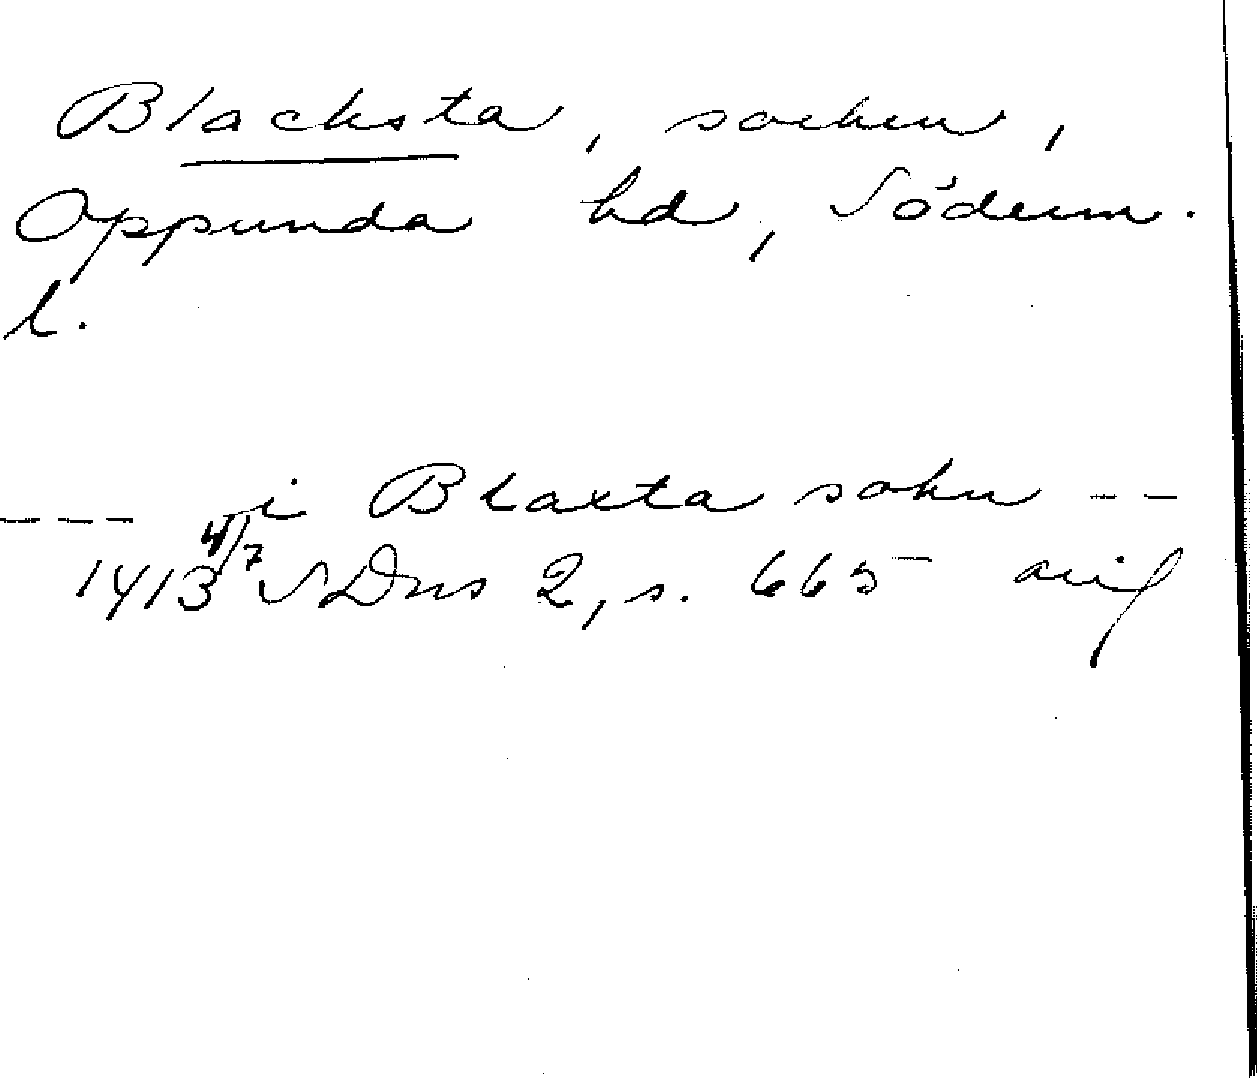 Blacksta, socken,
Oppunda hd, Söderm.
l.
--- i Blaxta sokn --
1413 4/7 SDns 2, s. 665 avs